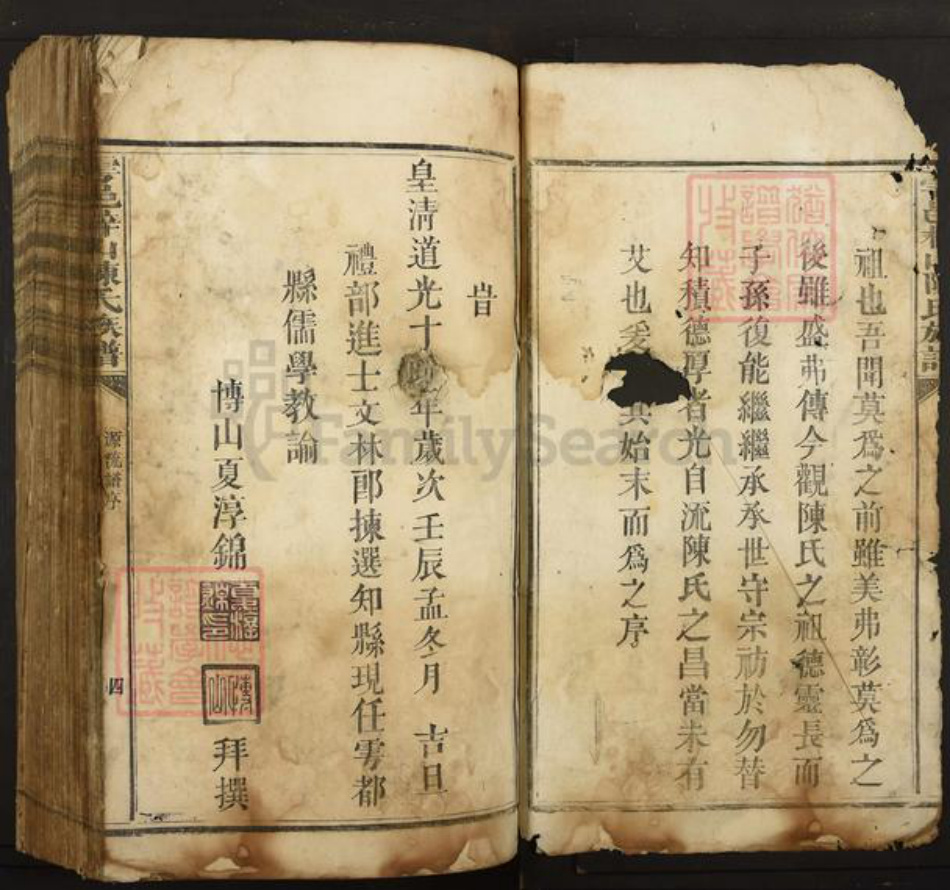 祖也吾聞莫爲之前雖美弗彰莫爲之
後雖盛弗傳今觀陳氏之祖德靈長而
子孫復能繼繼承承世守宗祊於勿替
知積德厚者光自流陳氏之昌當未有
艾也爰其始末而爲之序
旹
皇清道光十年歲次壬辰孟冬月 吉旦
禮部進士文林郎揀選知縣現任雩都
縣儒學教諭
博山夏淳錦 拜撰
陳氏族譜
源流譜序
四
FamilySearch